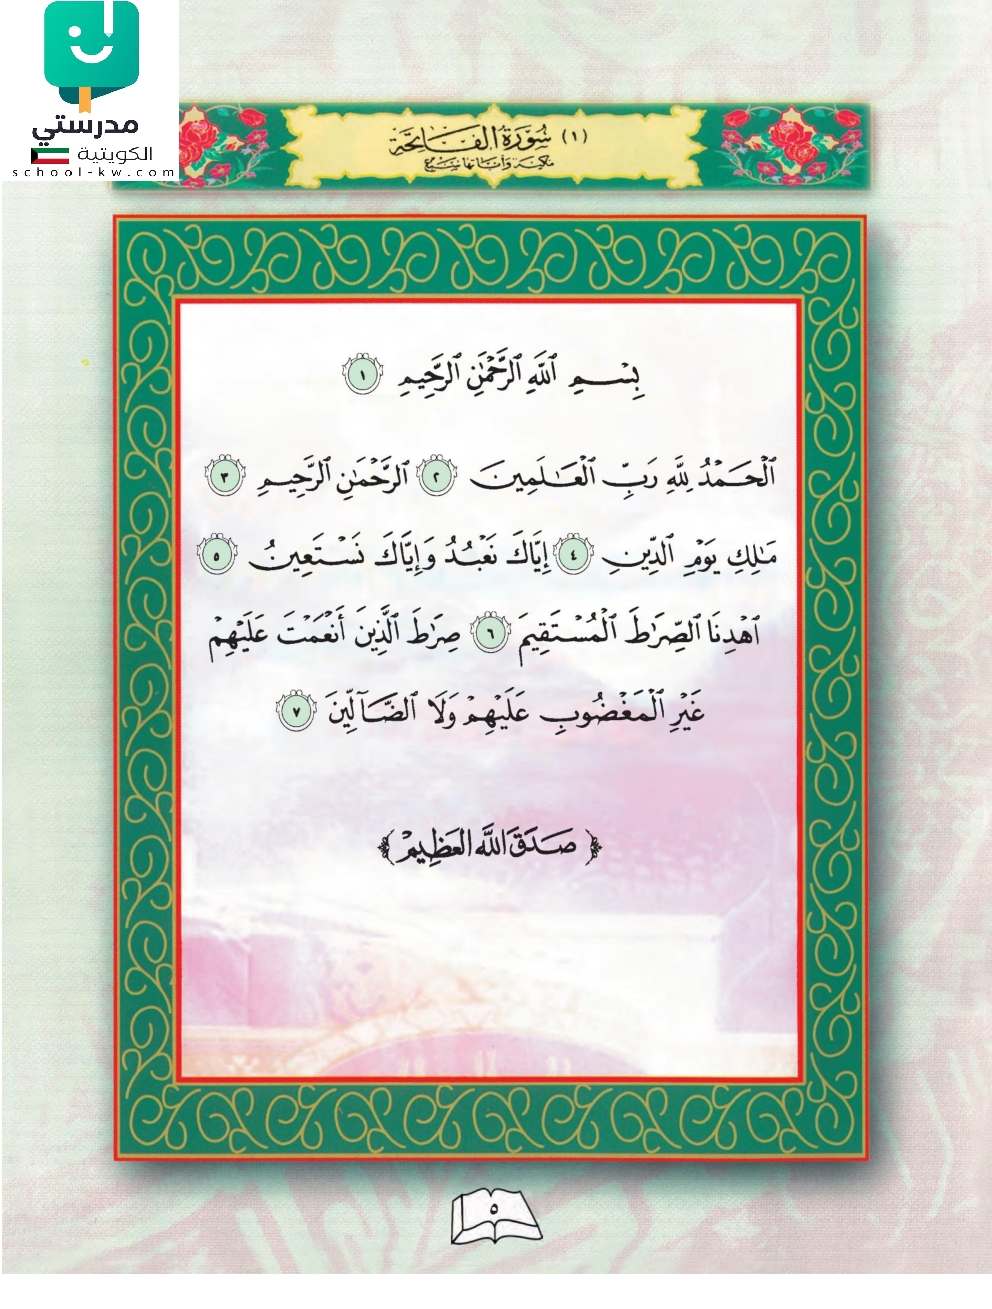 مدرستي
الكويتية
school-kw.com
(١) سُورَةُ الفَاتِحَة
مكية وآياتها سبع
بِسۡمِ ٱللَّهِ ٱلرَّحۡمَٰنِ ٱلرَّحِيمِ ١
ٱلۡحَمۡدُ لِلَّهِ رَبِّ ٱلۡعَٰلَمِينَ ٢ ٱلرَّحۡمَٰنِ ٱلرَّحِيمِ ٣
مَٰلِكِ يَوۡمِ ٱلدِّينِ ٤ إِيَّاكَ نَعۡبُدُ وَإِيَّاكَ نَسۡتَعِينُ ٥
ٱهۡدِنَا ٱلصِّرَٰطَ ٱلۡمُسۡتَقِيمَ ٦ صِرَٰطَ ٱلَّذِينَ أَنۡعَمۡتَ عَلَيۡهِمۡ
غَيۡرِ ٱلۡمَغۡضُوبِ عَلَيۡهِمۡ وَلَا ٱلضَّآلِّينَ ٧
﴿ صَدَقَ اللَّه العَظِيمۡ ﴾
٥